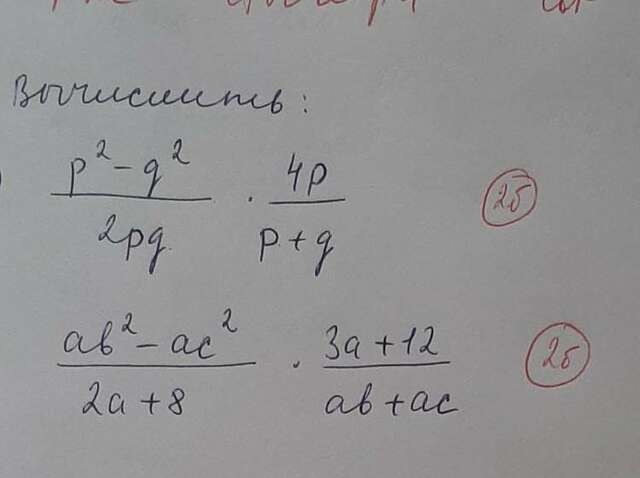 Вычислить:
p² - q² / 2pq · 4p / p + q 2б
ab² - ac² / 2a + 8 · 3a + 12 / ab + ac 2б